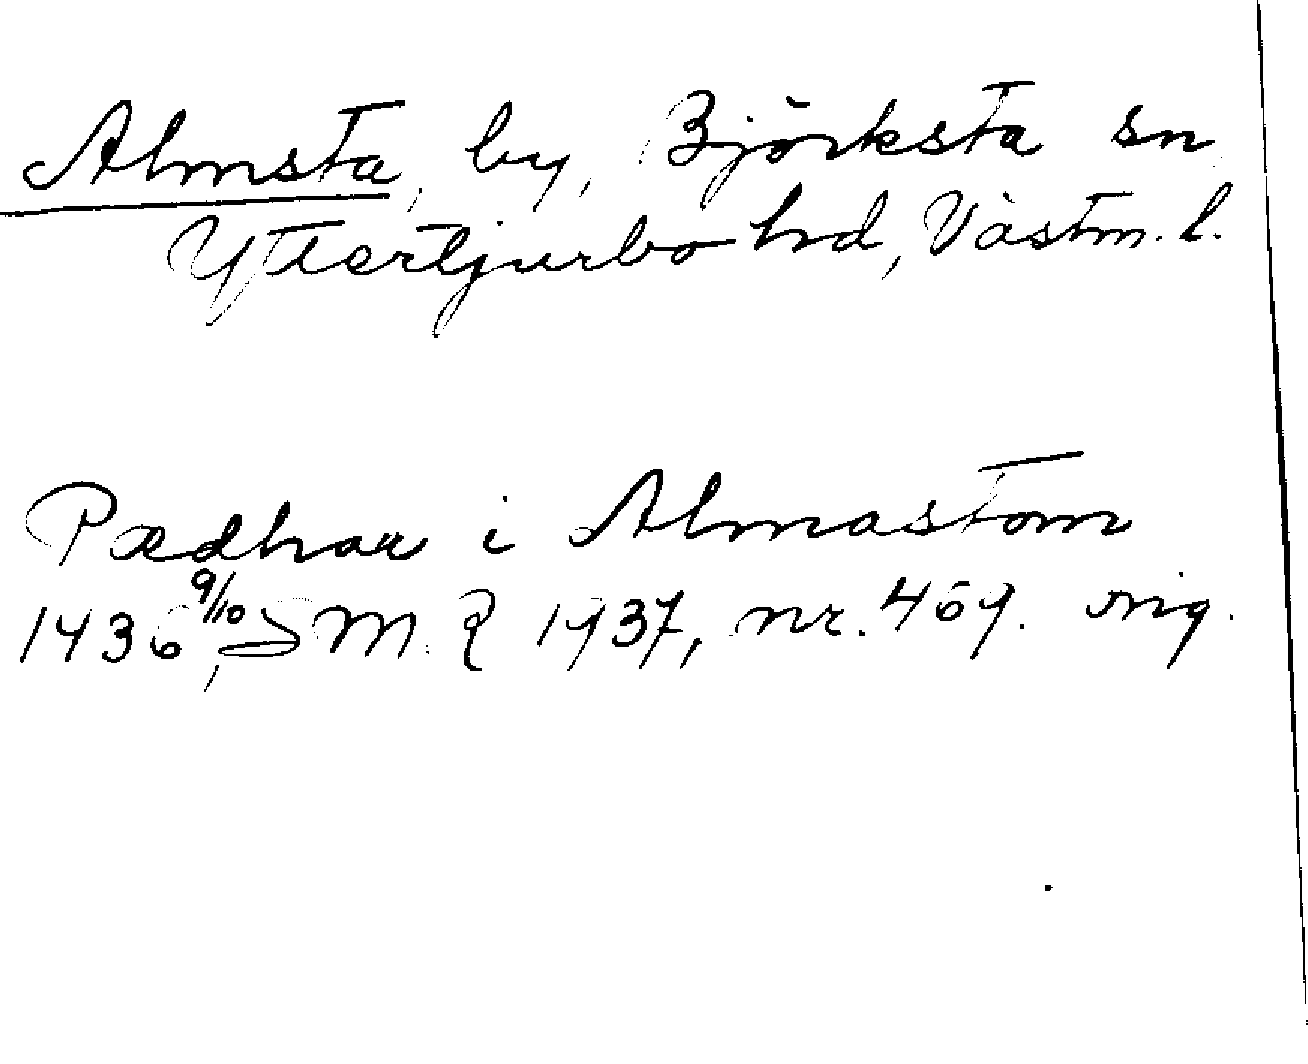 Almsta, by, Björksta sn
Yttertjurbo hd, Västm. l.
Pædhar i Almastom
1436 9/10, SMR 1937, nr. 469. sig.